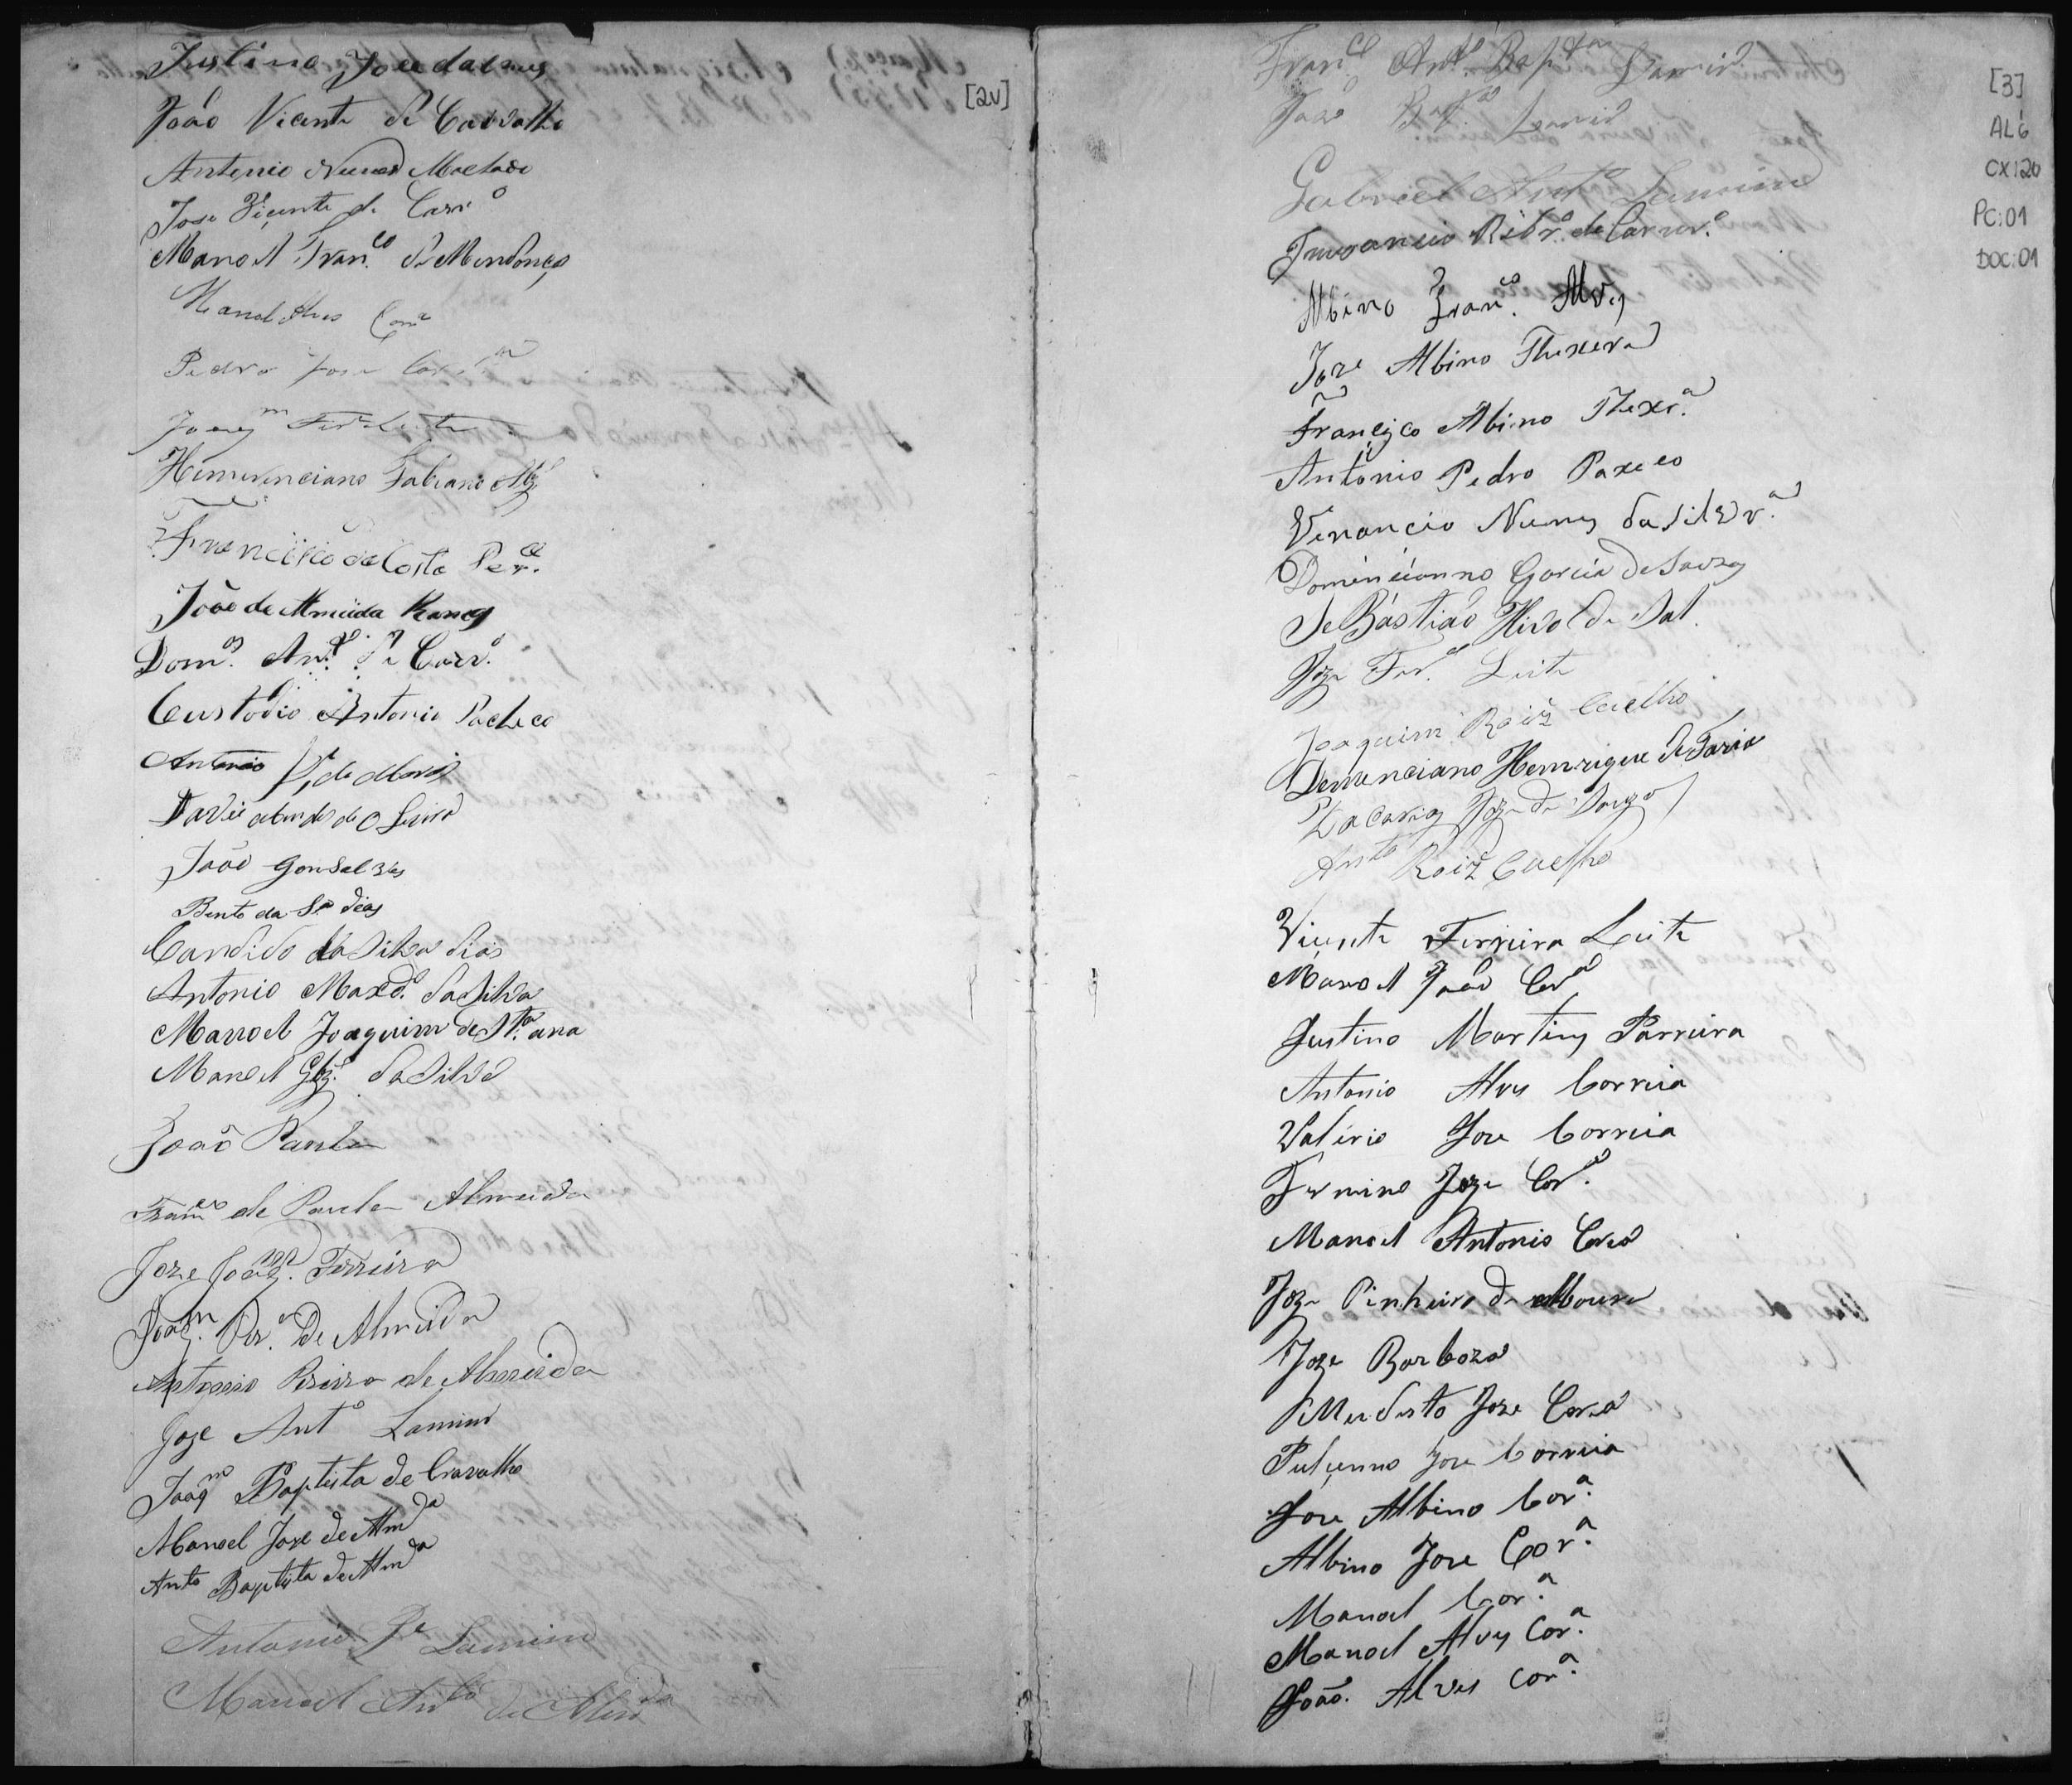 Justino Joze dalves
João Vicente de Carvalho
Antonio Nunes Machado
Jose Viçente de Carv.º
Manoel Fran.co de Mendonça
Manoel Alves Corr.a
Pedro Jose
Joaq.m Ferr.a Leite
Hemerenciano Fabiano
Francisco da Costa Per.a
João de Almeida Ramos
Dom.os Ant.º de Carv.º
Custodio Antonio Pacheco
Antonio
de Oliveira
João Gonsalves
Bento da S.a dias
Candido da Silva dias
Antonio Maxd.º da Silva
Manoel Joaquim de St.a ana
Manoel Glz.' da Silva
João Paula
Fran.co de Paula Almeida
Joze Joaq.m Ferreira
Joaq.m Per.a De Almeida
Antonio Pereira de Almeida
Joze Ant.º Lamim
Joaq.m Baptista de Cravalho
Manoel Joze de Alm.da
Ant.o Baptista de Alm.da
Antonio Je Lamim
Manoel Ant.º de Alm.da
[2v]
Fran.co Ant.º Bap.ta Lamim
João Bap.ta Lamim
Gabriel Ant.º Lamim
Ribr.º de Carvr.º
Albino Fran.co Alves
Joze Albino Thexera
Françisco Albino Thexr.a
Antonio Pedro Paxeco
Venancio Nunes da Silvr.a
Domincianno Garcia de Souza
SeBastião Hivo de Sal.
Joze Fer.a Leite
Joaquim Roiz Coelho
Demenciano Hemrique de Faria
Zacarias Joze de
Ant.o Roiz Coelho
Viçente Ferreira Leite
Manoel João Cor.a
Justino Martins Parreira
Antonio Alves Correia
Valerio Jose Correia
Fermino Joze Cor.a
Manoel Antonio Corea
Joze Pinheiro de Moura
Joze Barboza
Mudesto Joze Corea
Jose Correia
Jose Albino Cor.a
Albino Jose Cor.a
Manoel Cor.a
Manoel Alves Cor.a
João. Alves Cor.a
[3]
AL6
CX120
PC:01
DOC:01